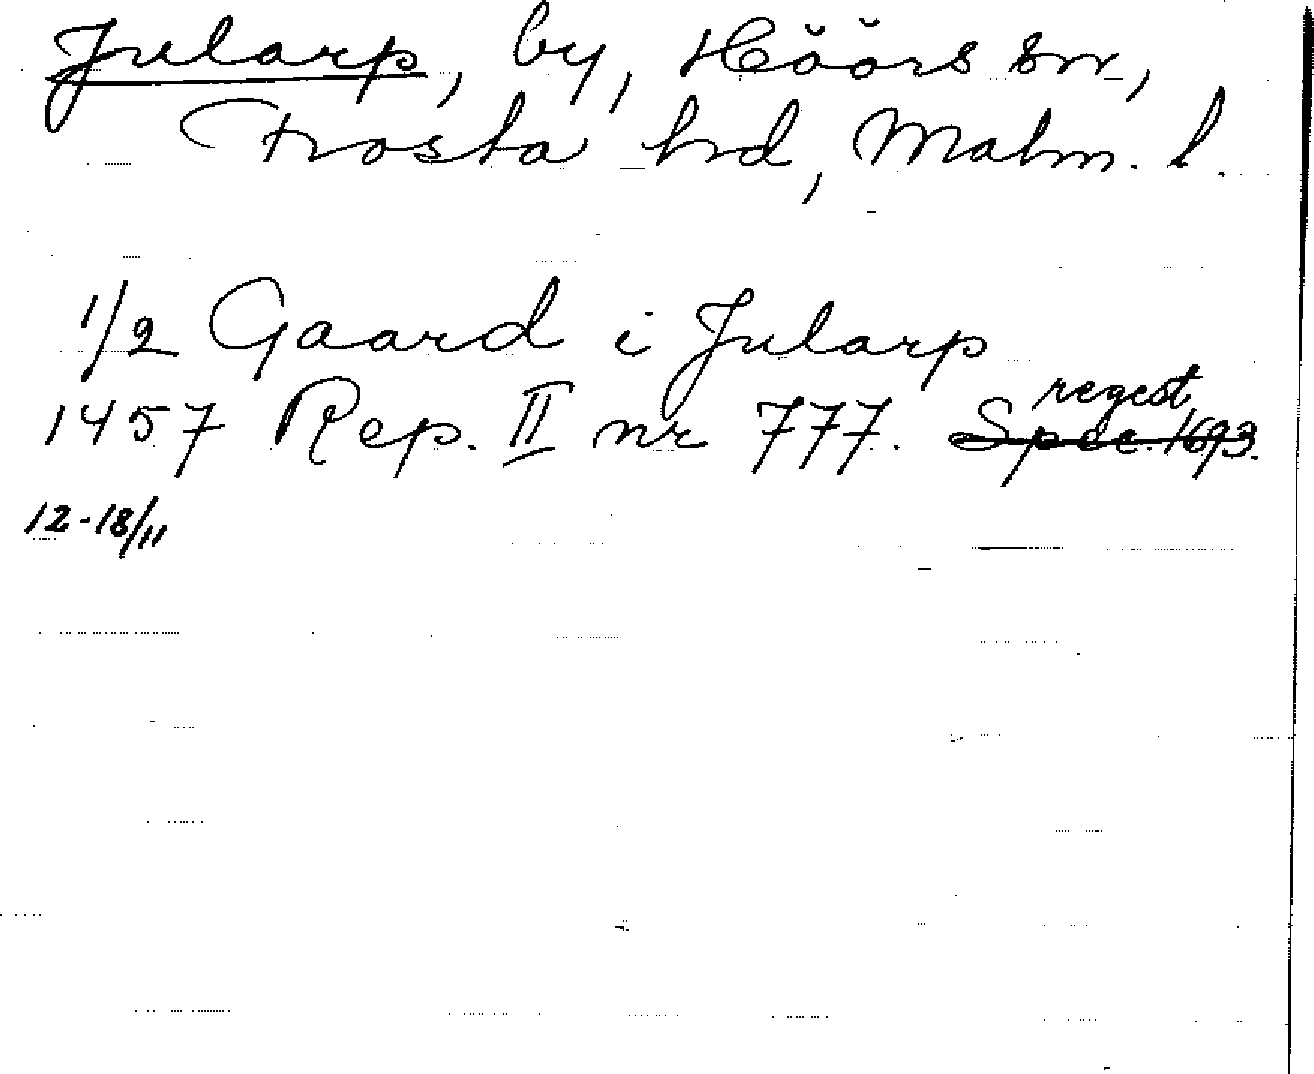 Jularp, by, Höörs sn,
Frosta hd, Malm. l.
1/2 Gaard i Jularp
regest
1457 Rep. II nr 777. Spec. 1693.
12-18/11